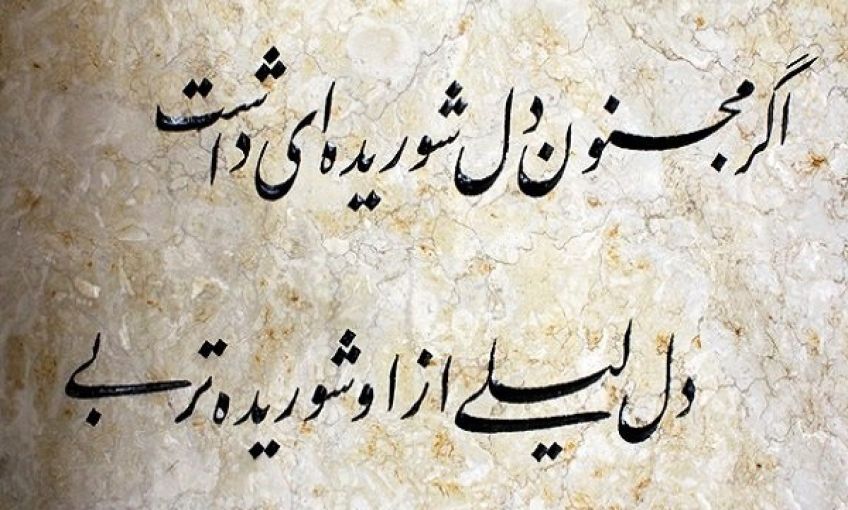 اگر مجنون دل شوریده‌ای داشت
دل لیلی از او شوریده تر بی